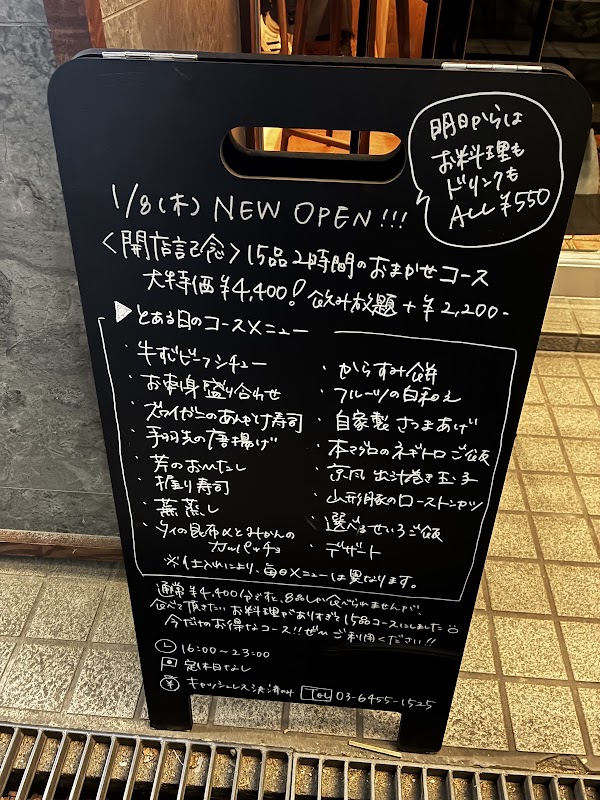 明日からは
お料理も
ドリンクも
ALL ¥550
1/8(木) NEW OPEN!!!
〈開店記念〉15品2時間のおまかせコース
大特価¥4,400! 飲み放題+¥2,200-
▶とある日のコースメニュー
・牛すじビーフシチュー
・お刺身盛り合わせ
・ズワイガニのあんかけ寿司
・手羽先の唐揚げ
・芳のおひたし
・握り寿司
・蕪蒸し
・タイの昆布〆とみかんの
カルパッチョ
・からすみ餅
・フルーツの白和え
・自家製さつまあげ
・本マグロのネギトロご飯
・京風出汁巻き玉子
・山形豚のローストンカツ
・選べるせいろご飯
・デザート
※仕入れにより、毎日メニューは異なります。
通常¥4,400分ですと、8品しか食べられませんが、
食べて頂きたいお料理がありすぎて15品コースにしました
今だけのお得なコース!!ぜひご利用ください!!
16:00~23:00
定休日なし
¥ キャッシュレス決済のみ
TEL 03-6455-1525